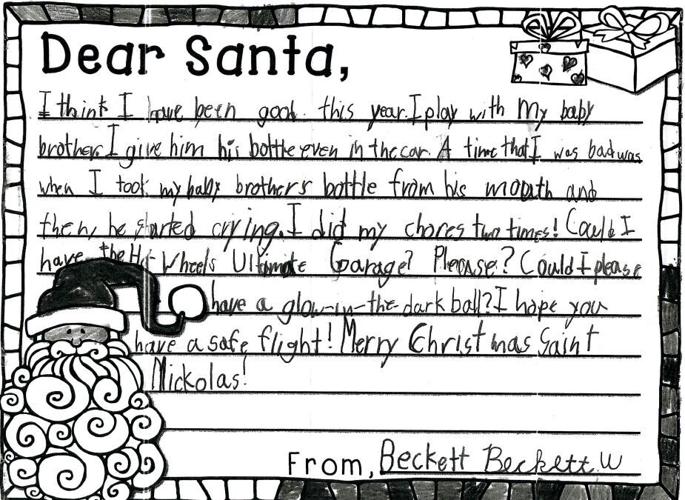 Dear Santa,
I think I have been good this year. I play with my baby
brother. I give him his bottle even in the car. A time that I was bad was
when I took my baby brothers bottle from his mouath and
then, he started crying. I did my chores two times! Could I
have the Hot Wheels Ultimate Garage? Please? Could I please
have a glow-in-the dark ball? I hope you
have a safe flight! Merry Christmas Saint
Nickolas!
From, Beckett Beckett W